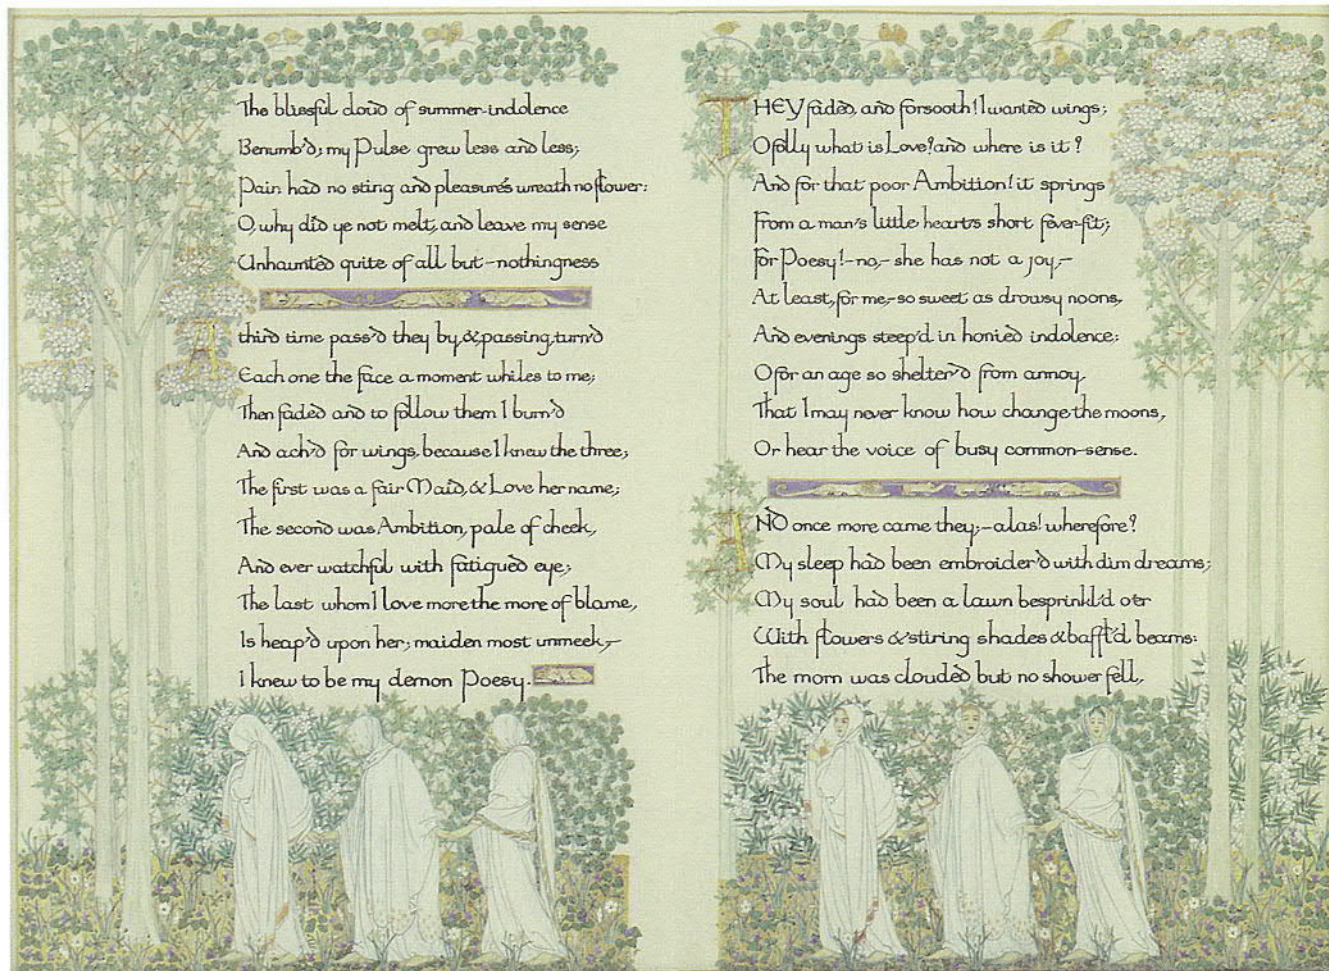 The blissful cloud of summer-indolence
Benumb'd; my Pulse grew less and less;
Pain had no sting and pleasure's wreath no flower:
O, why did ye not melt, and leave my sense
Unhaunted quite of all but-nothingness
A third time pass'd they by, & passing, turn'd
Each one the face a moment whiles to me;
Then faded and to follow them I burn'd
And ach'd for wings, because I knew the three;
The first was a fair Maid, & Love her name;
The second was Ambition, pale of cheek,
And ever watchful with fatigued eye;
The last whom I love more the more of blame,
Is heap'd upon her; maiden most unmeek,-
I knew to be my demon Poesy.
THEY faded, and forsooth! I wanted wings;
O folly what is Love? and where is it?
And for that poor Ambition! it springs
From a man's little heart's short fever-fit;
For Poesy!-no,- she has not a joy,-
At least, for me,-so sweet as drowsy noons,
And evenings steep'd in honied indolence;
O for an age so shelter'd from annoy,
That I may never know how change the moons,
Or hear the voice of busy common-sense.
AND once more came they;-alas! wherefore?
My sleep had been embroider'd with dim dreams;
My soul had been a lawn besprinkl'd o'er
With flowers & stiring shades & baffl'd beams:
The morn was clouded but no shower fell,